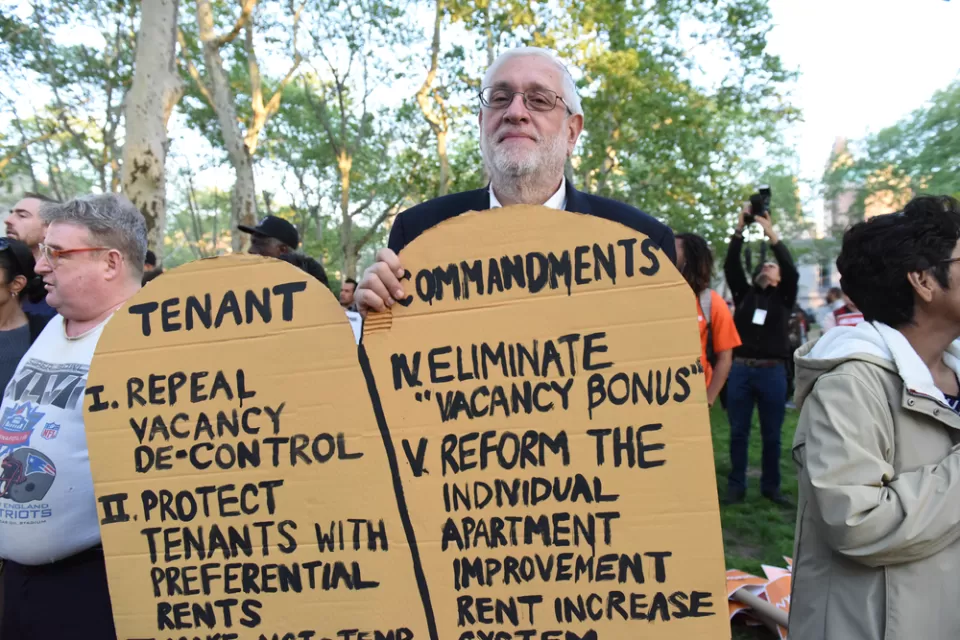 TENANT
I. REPEAL
VACANCY
DE-CONTROL
II. PROTECT
TENANTS WITH
PREFERENTIAL
RENTS
COMMANDMENTS
IV. ELIMINATE
"VACANCY BONUS"
V. REFORM THE
INDNIDUAL
APARTMENT
IMPROVEMENT
RENT INCREASE
SYSTEM
XLVI
NFL
PATRIOTS